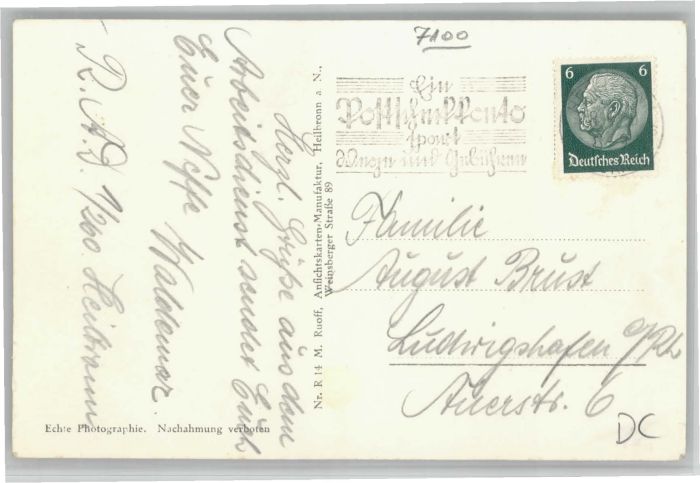 7100
Ein
Postscheckkonto
spart
Wege und Gebühren
6 6
Deutsches Reich
Herzl. Grüße aus dem
Arbeitsdienst sendet Euch
Euer Neffe Waldemar.
R.A.D. 1/260 Heilbronn
Nr. R 14 M. Ruoff, Ansichtskarten-Manufaktur, Heilbronn a. N.,
Weinsberger Straße 89
Familie
August Brust
Ludwigshafen a/Rh
Auerstr. 6
Echte Photographie. Nachahmung verboten
DC